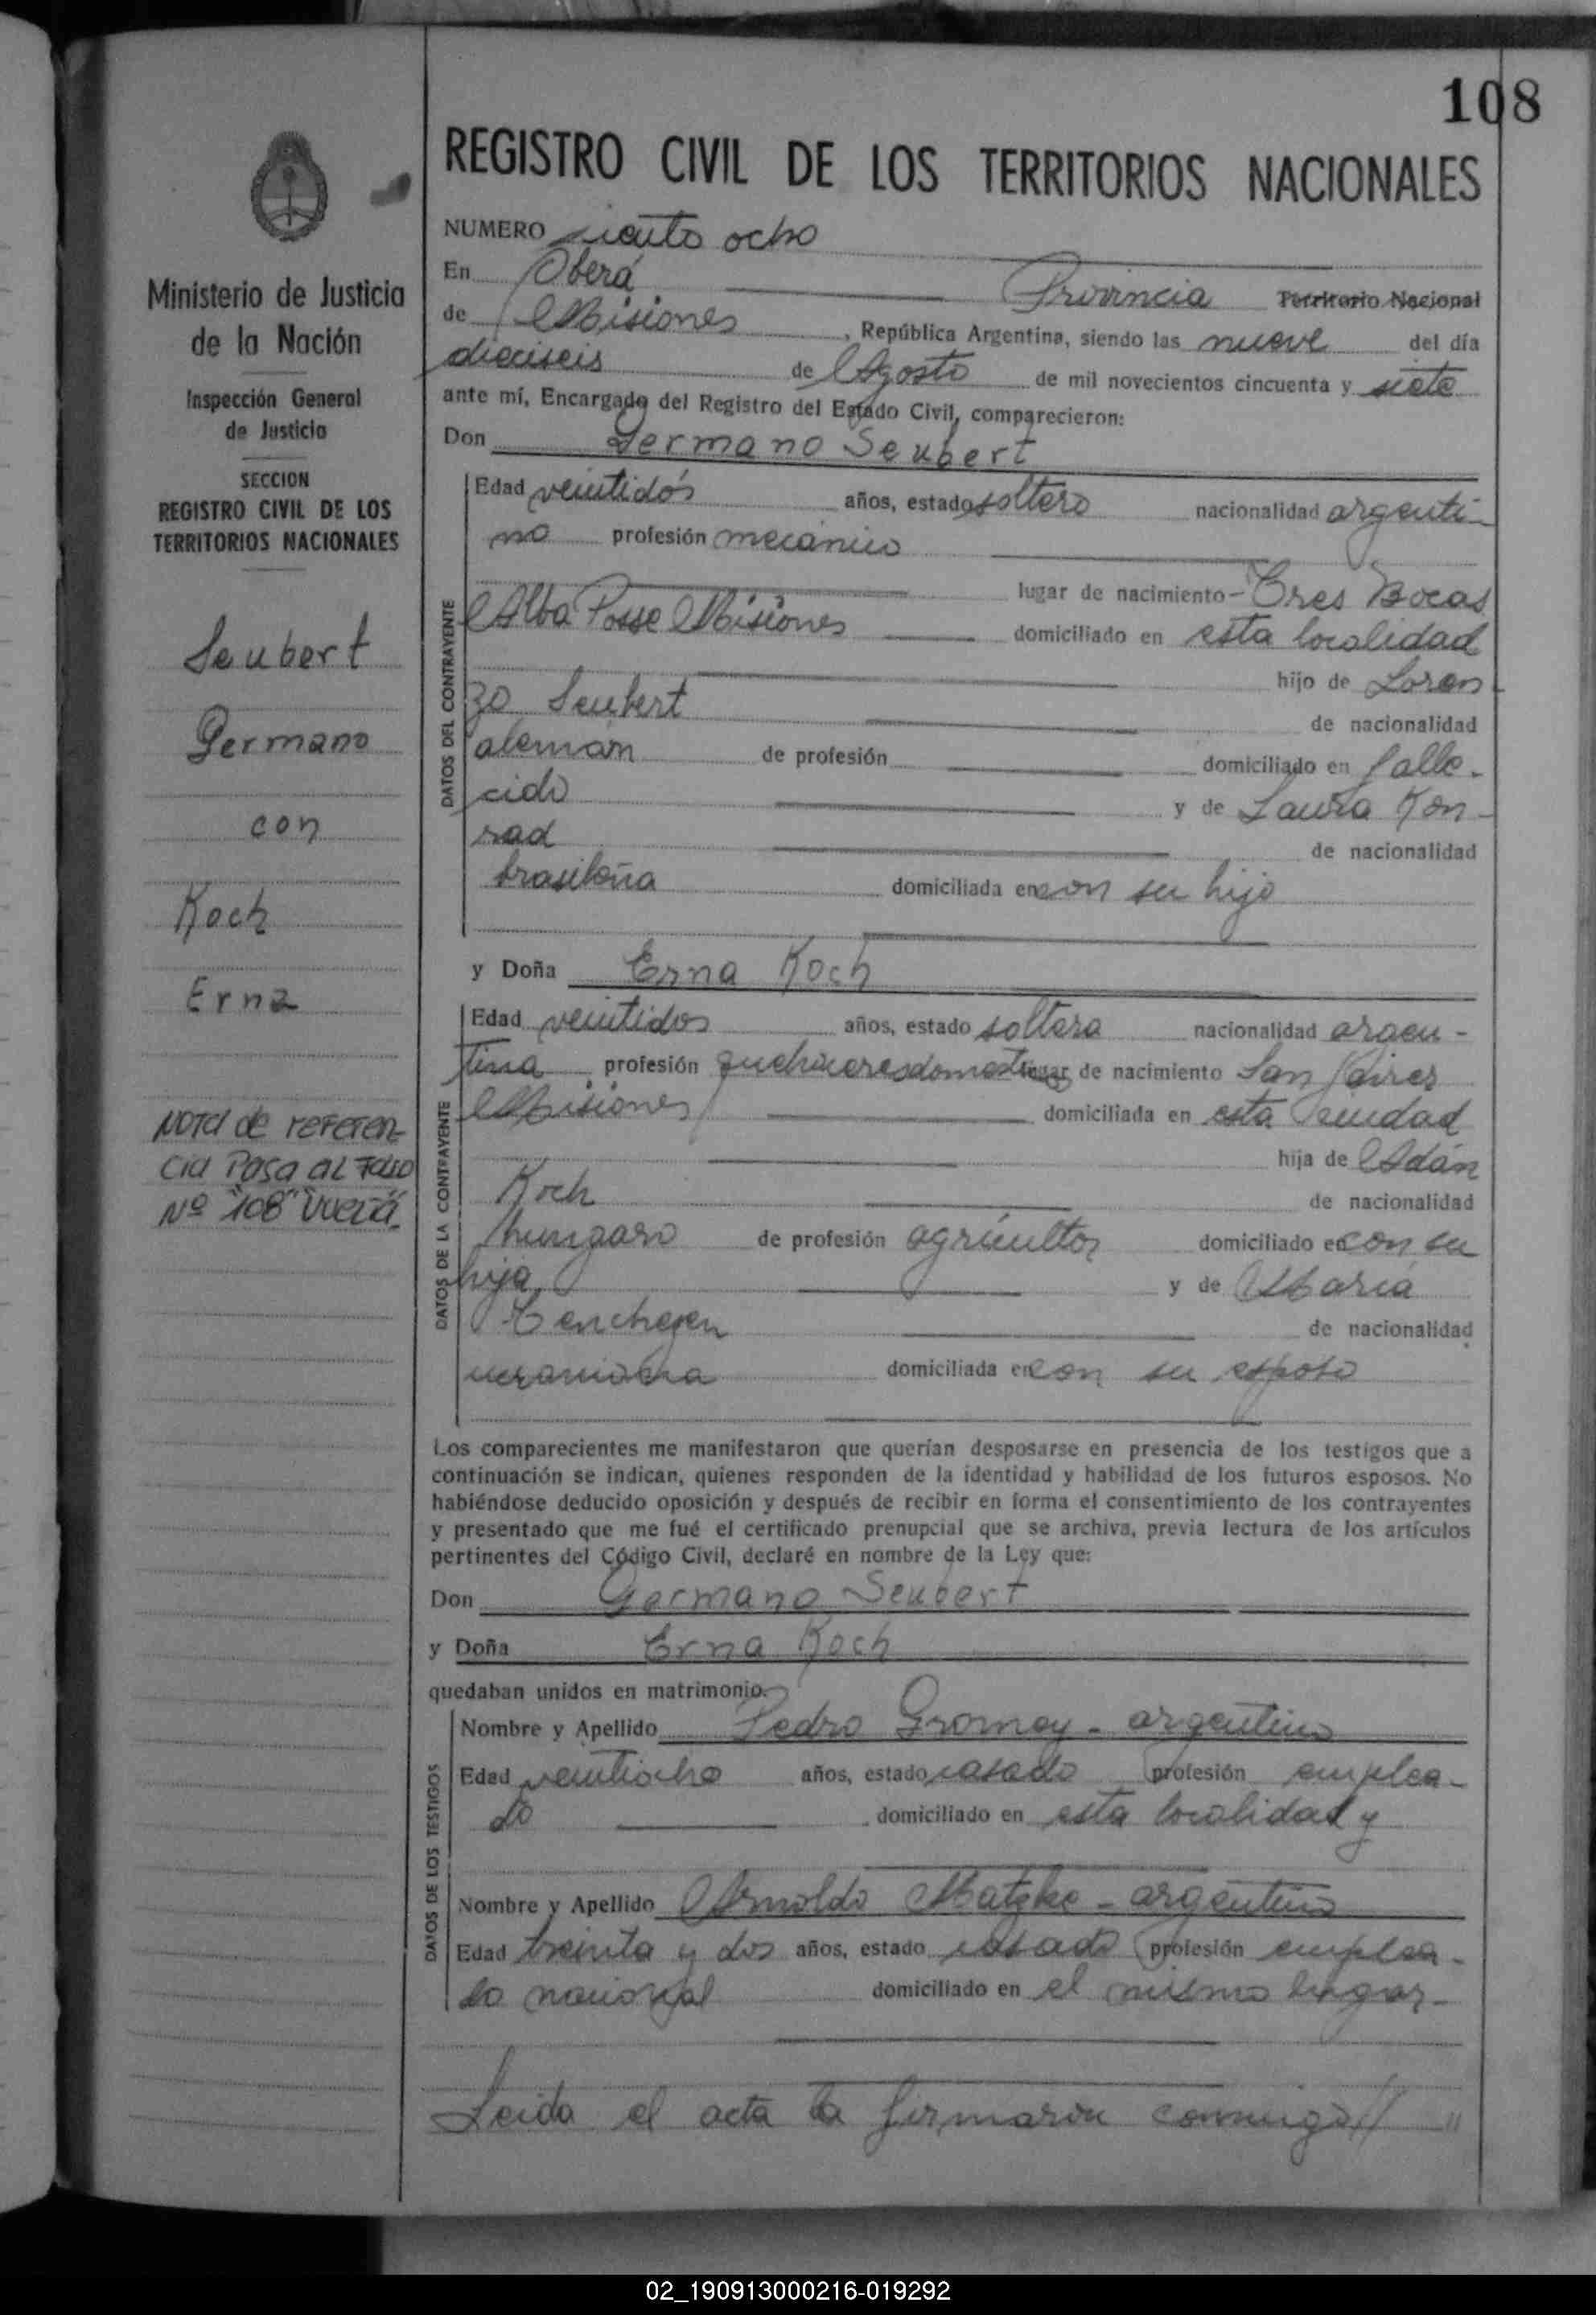 108
REGISTRO CIVIL DE LOS TERRITORIOS NACIONALES
NUMERO ciento ocho
En Oberá Provincia Territorio Nacional
de Misiones, República Argentina, siendo las nueve del día
dieciseis de Agosto de mil novecientos cincuenta y siete
ante mí, Encargado del Registro del Estado Civil, comparecieron:
Don Germano Seubert
DATOS DEL CONTRAYENTE
Edad veintidós años, estado soltero nacionalidad argenti-
no profesión mecánico
lugar de nacimiento Tres Bocas
Alba Posse Misiones domiciliado en esta localidad
hijo de Loren
zo Seubert de nacionalidad
alemán de profesión domiciliado en falle-
cido y de Laura Kon-
rad de nacionalidad
brasileña domiciliada en con su hijo
y Doña Erna Koch
DATOS DE LA CONTRAYENTE
Edad veintidos años, estado soltera nacionalidad argen-
tina profesión quehaceres domest lugar de nacimiento San Javier
Misiones domiciliada en esta ciudad
hija de Adán
Koch de nacionalidad
hungaro de profesión agricultor domiciliado en con su
hija y de María
de nacionalidad
ucraniana domiciliada en con su esposo
Los comparecientes me manifestaron que querían desposarse en presencia de los testigos que a
continuación se indican, quienes responden de la identidad y habilidad de los futuros esposos. No
habiéndose deducido oposición y después de recibir en forma el consentimiento de los contrayentes
y presentado que me fué el certificado prenupcial que se archiva, previa lectura de los artículos
pertinentes del Código Civil, declaré en nombre de la Ley que:
Don Germano Seubert
y Doña Erna Koch
quedaban unidos en matrimonio.
DATOS DE LOS TESTIGOS
Nombre y Apellido Pedro - argentino
Edad veintiocho años, estado casado profesión emplea-
do domiciliado en esta localidad y
Nombre y Apellido Arnoldo Matzke - argentino
Edad treinta y dos años, estado casado profesión emplea-
do nacional domiciliado en el mismo lugar-
Leida el acta la firmaron conmigo//
Ministerio de Justicia
de la Nación
Inspección General
de Justicia
SECCION
REGISTRO CIVIL DE LOS
TERRITORIOS NACIONALES
Seubert
Germano
con
Koch
Erna
NOTA de referen-
cia Pasa al Folio
Nº "108" Vuelta
02_190913000216-019292